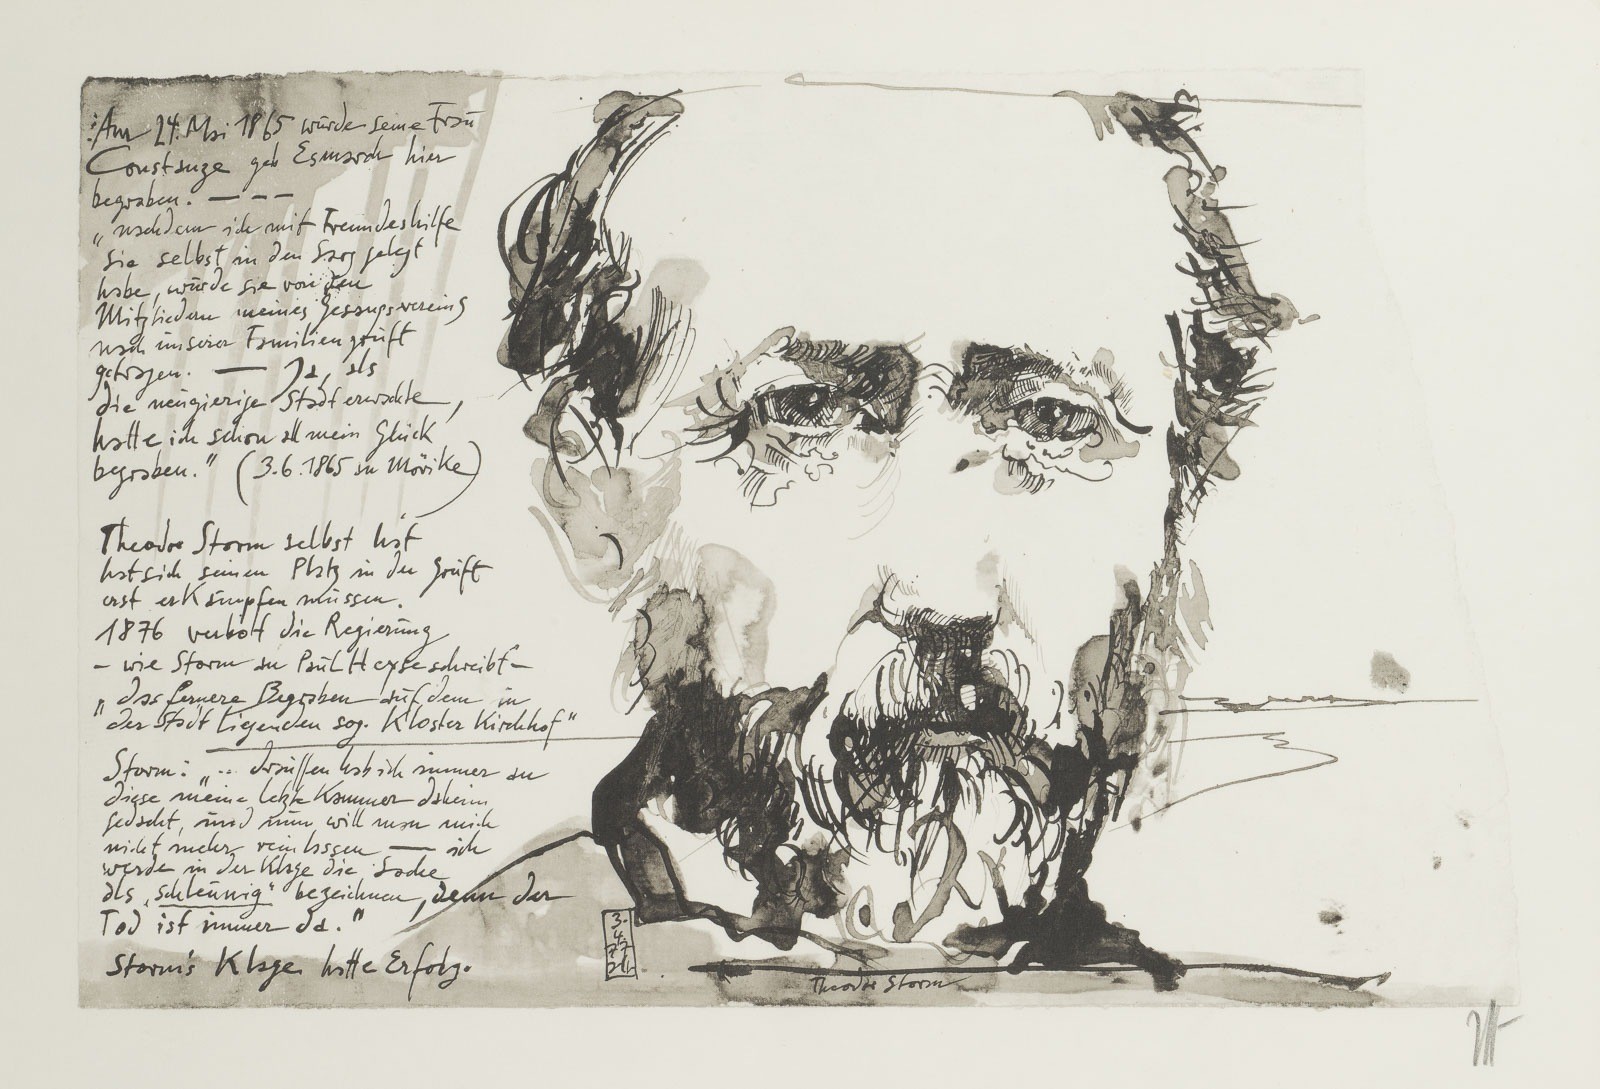 : Am 24. Mai 1865 wurde seine Frau
Constanze geb Esmarch hier
begraben. — – –
„nachdem ich mit Freundeshilfe
sie selbst in den Sarg gelegt
habe, wurde sie von den
Mitgliedern meines Gesangvereins
nach unserer Familiengruft
getragen. — Ja, als
die neugierige Stadt erwachte,
hatte ich schon all mein Glück
begraben." (3.6.1865 an Mörike)
Theodor Storm selbst hat
hat sich seinen Platz in der Gruft
erst erkämpfen müssen.
1876 verbott die Regierung
– wie Storm an Paul Heyse schreibt –
„das fernere Begraben auf dem in
der Stadt liegenden sog. Kloster Kirchhof"
Storm: „.. draußen hab ich immer an
diese meine letzte Kammer daheim
gedacht, und nun will man mich
nicht mehr reinlassen — ich
werde in der Klage die Sache
als „schleunig" bezeichnen, denn der
Tod ist immer da."
Storm's Klage hatte Erfolg.
3.
4.
77
Theodor Storm